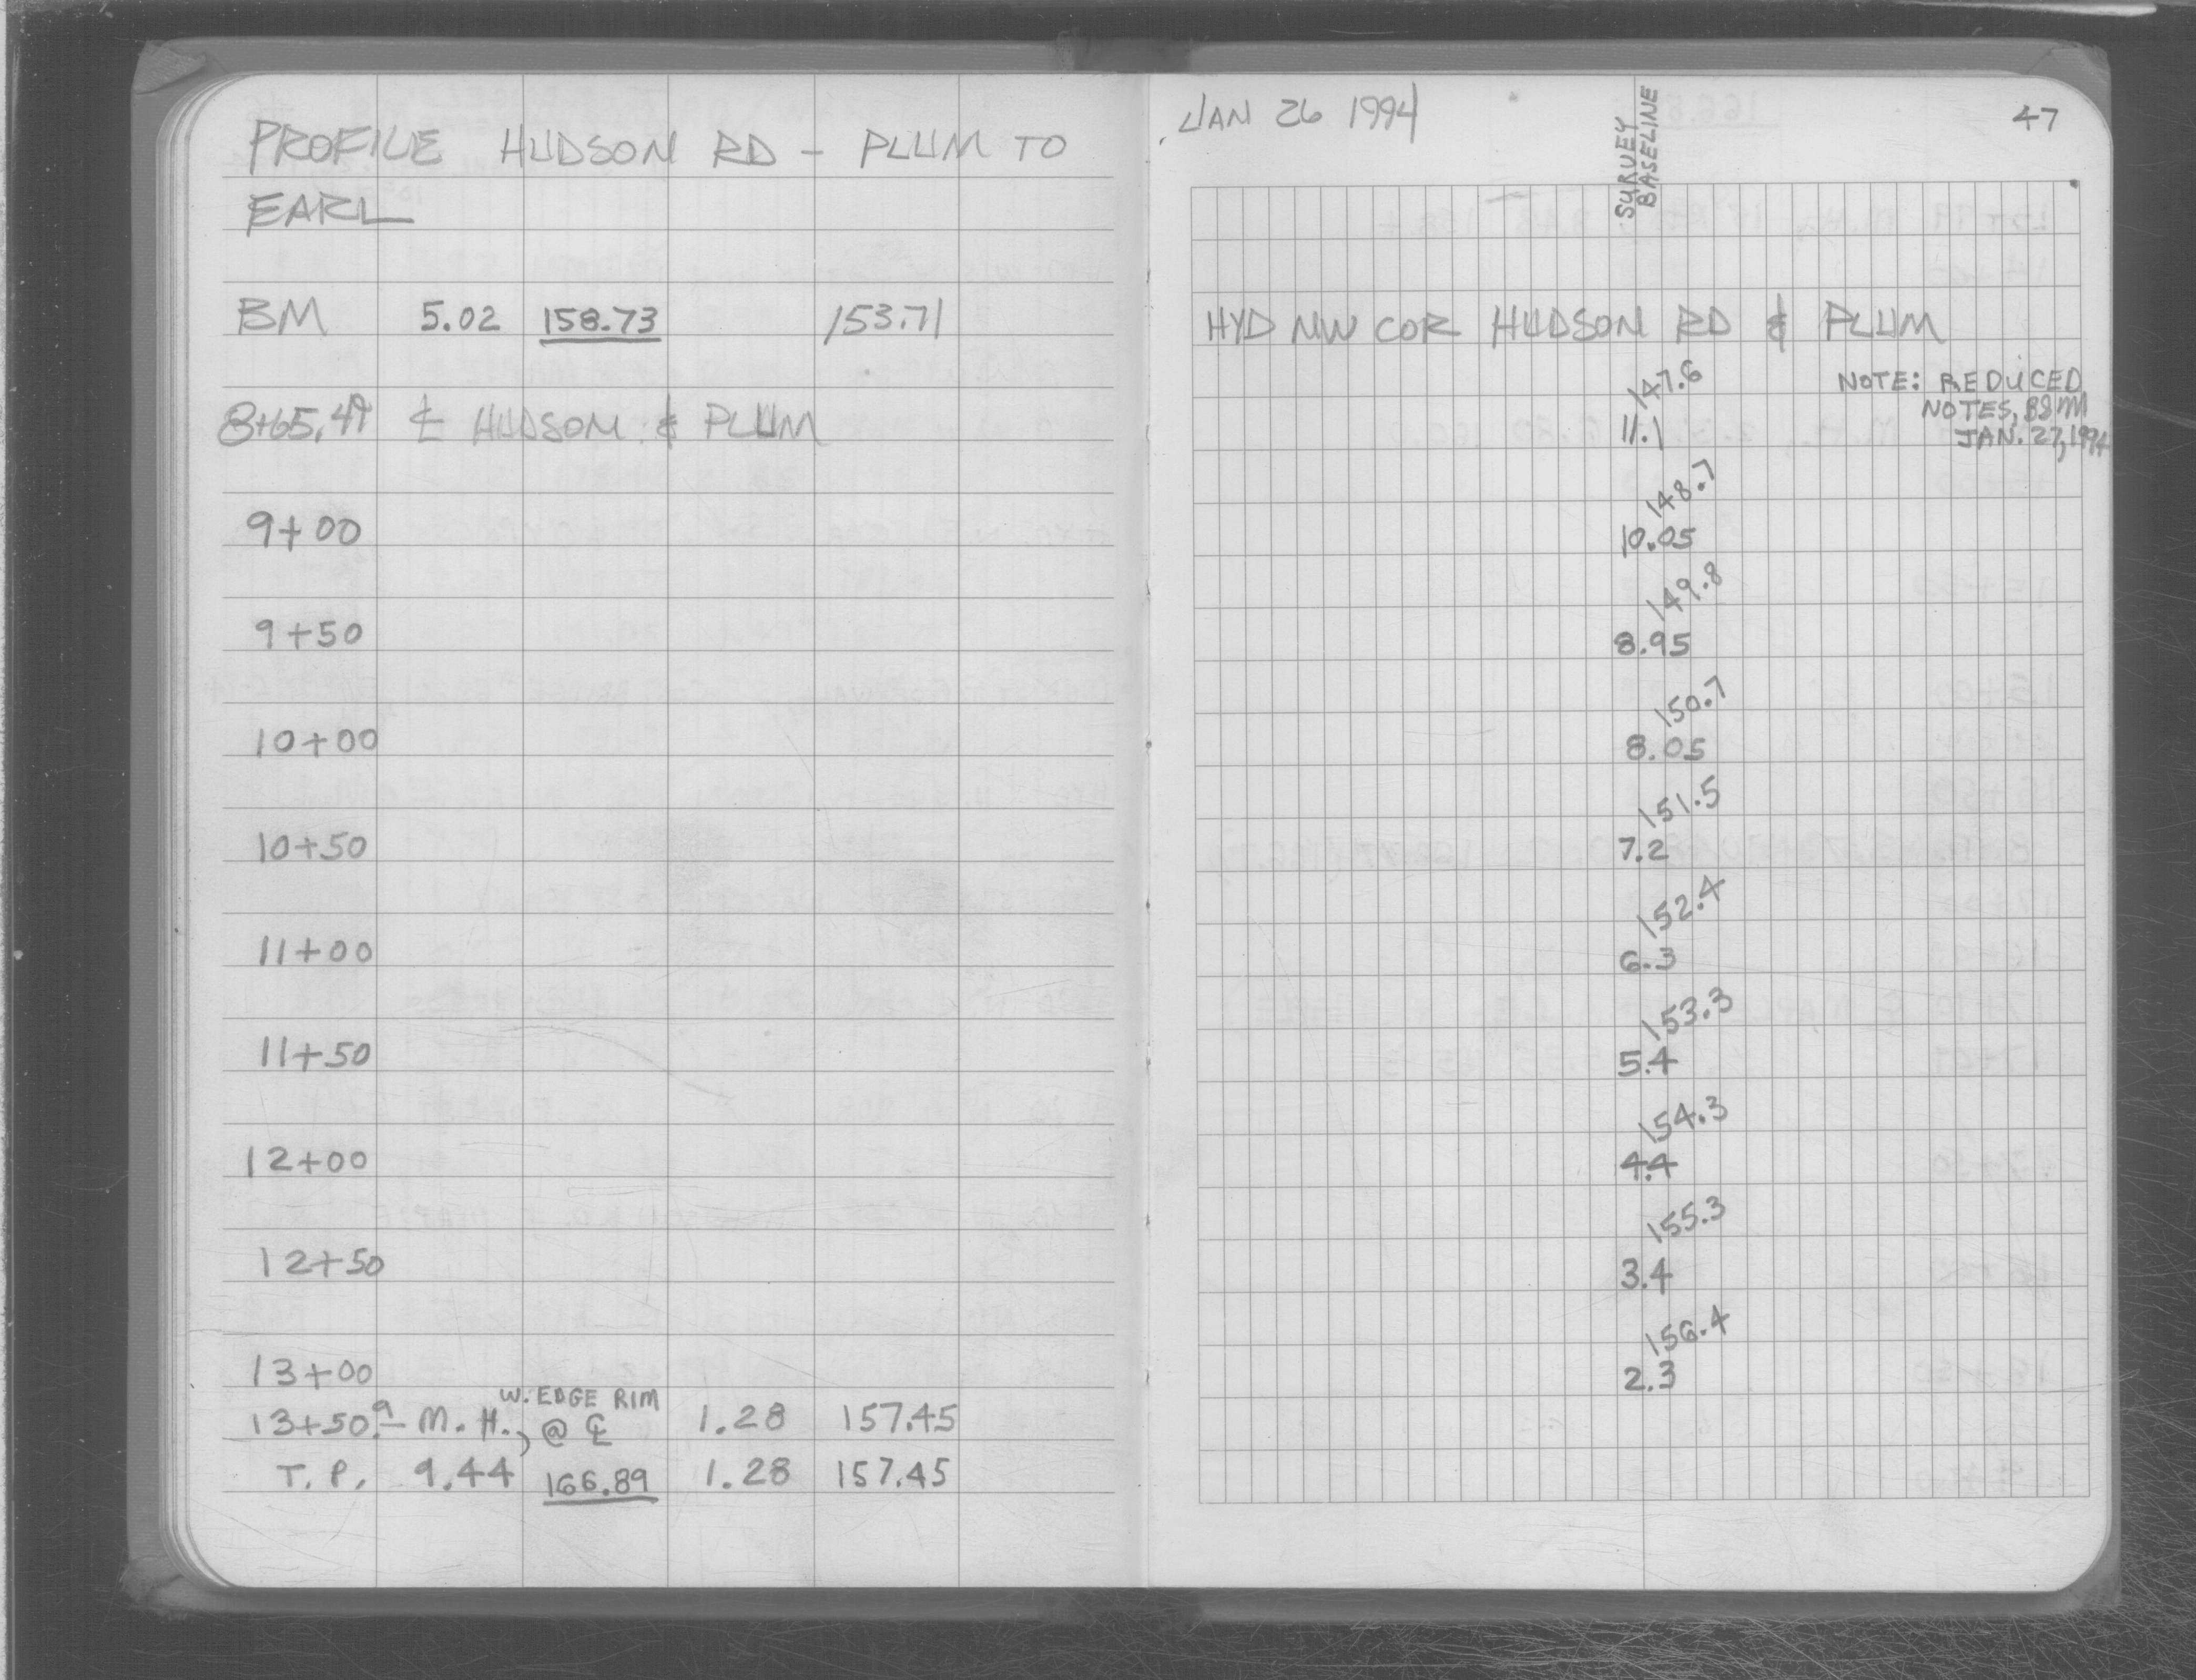 PROFILE HUDSON RD - PLUM TO
EARL
BM 5.02 158.73 153.71
8+65.49 ℄ HUDSON & PLUM
9+00
9+50
10+00
10+50
11+00
11+50
12+00
12+50
13+00
W. EDGE RIM
13+50.9 - M.H., @ ℄ 1.28 157.45
T.P. 9.44 166.89 1.28 157.45
JAN 26 1994
SURVEY
BASELINE
47
HYD NW COR HUDSON RD & PLUM
NOTE: REDUCED
NOTES, BSMM
JAN. 27, 1994
147.6
11.1
148.7
10.05
149.8
8.95
150.7
8.05
151.5
7.2
152.4
6.3
153.3
5.4
154.3
4.4
155.3
3.4
156.4
2.3